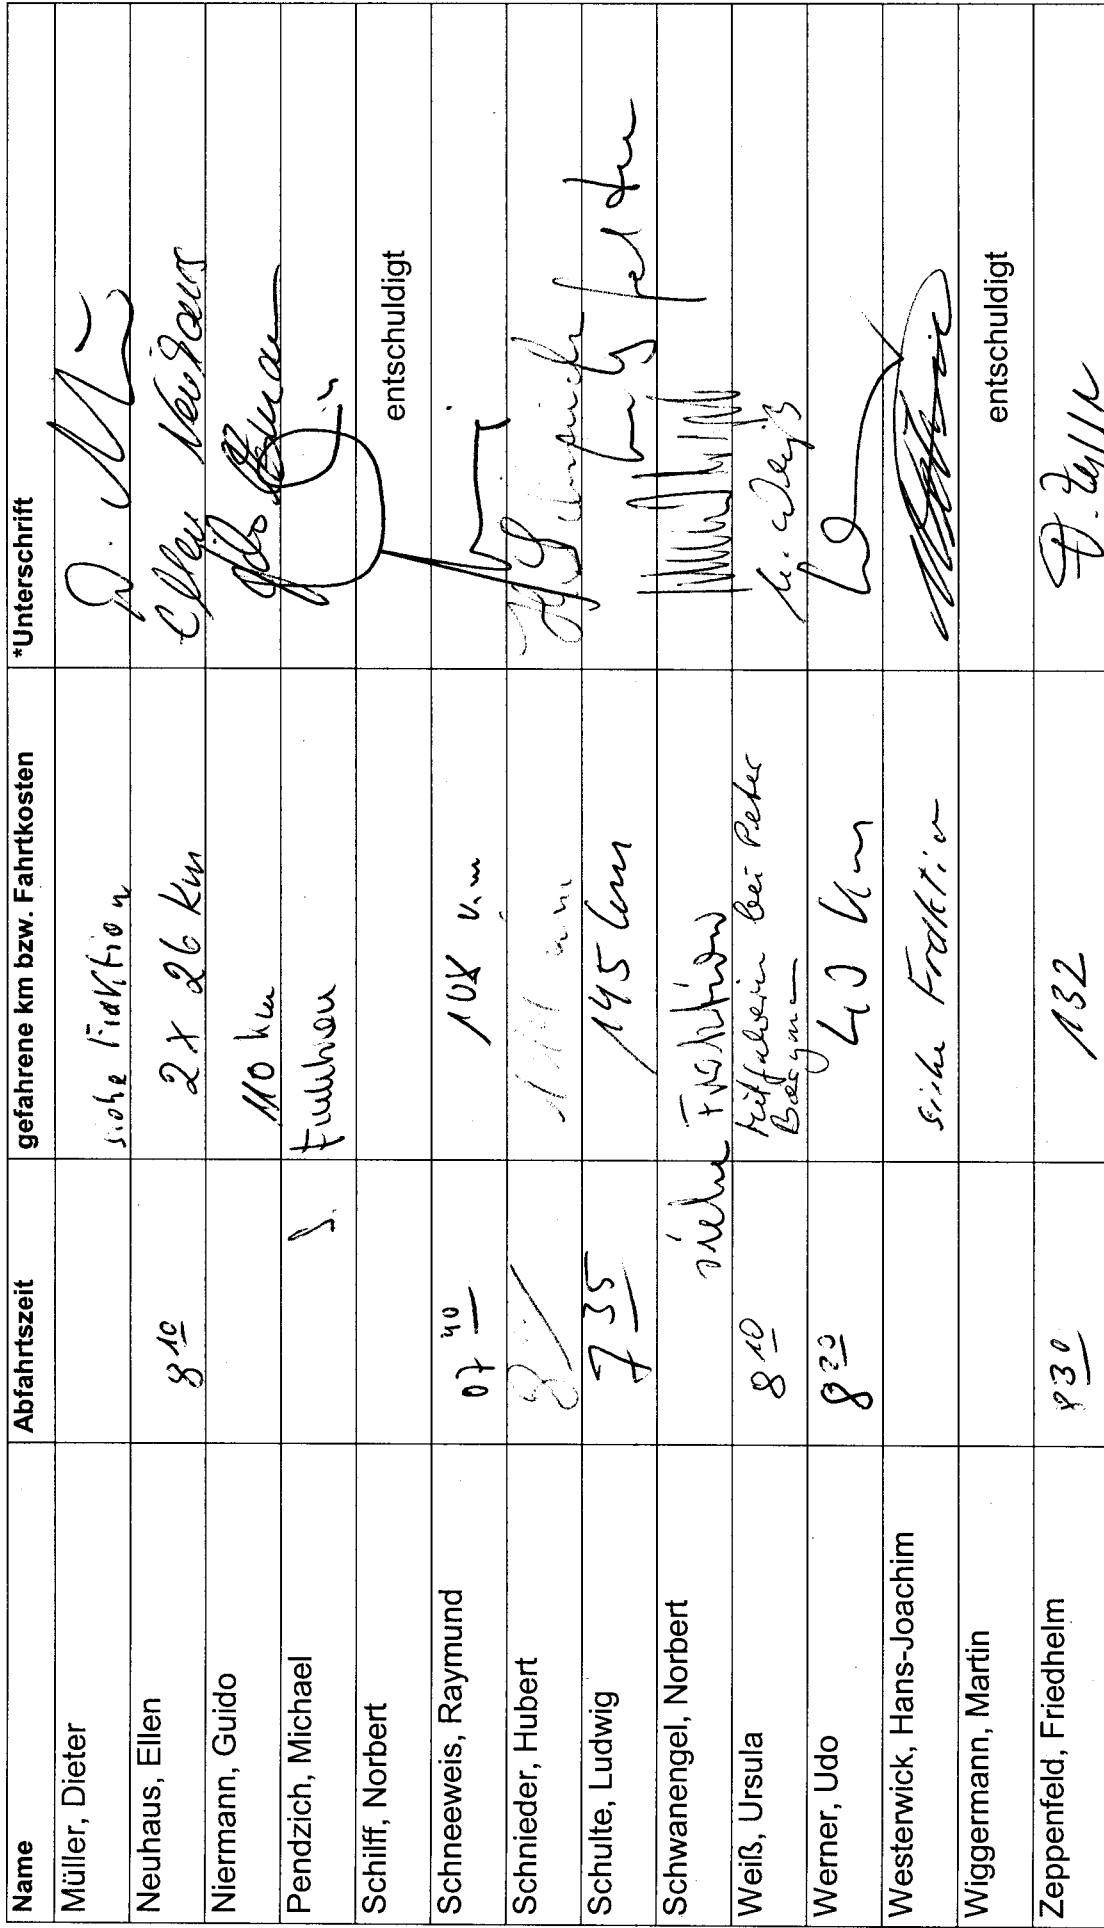 Name Abfahrtszeit gefahrene km bzw. Fahrtkosten *Unterschrift
Müller, Dieter siehe Fraktion
Neuhaus, Ellen 8 10 2 x 26 km Ellen Neuhaus
Niermann, Guido 110 km
Pendzich, Michael
Schilff, Norbert entschuldigt
Schneeweis, Raymund 07 40 108 km
Schnieder, Hubert
Schulte, Ludwig 7 35 145 km
Schwanengel, Norbert siehe Fraktion
Weiß, Ursula 8 10 Mitfahrerin bei Peter
U. Weiß
Werner, Udo 8 20 40 km
Westerwick, Hans-Joachim siehe Fraktion
Wiggermann, Martin entschuldigt
Zeppenfeld, Friedhelm 8 30 132